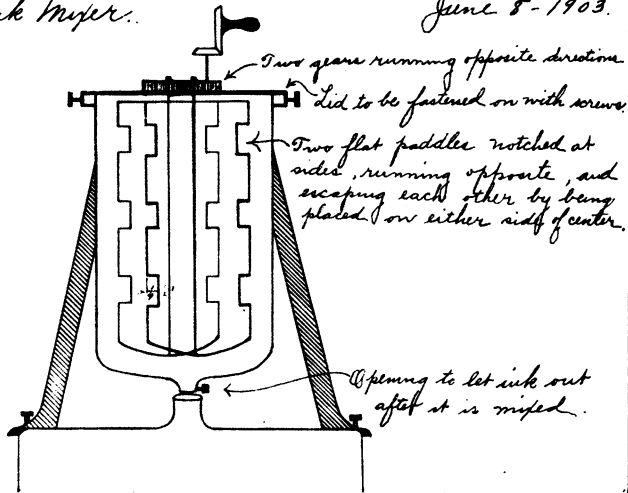 Mixer.
June 8 - 1903.
Two gears running opposite directions
Lid to be fastened on with screws.
Two flat paddles notched at
sides, running opposite, and
escaping each other by being
placed on either side of center.
Opening to let ink out
after it is mixed.